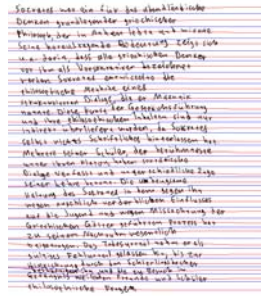 Sokrates war ein für das abendländische
Denken grundlegender griechischer
Philosoph, der in Athen lebte und wirkte
Seine herausragende Bedeutung zeigt sich
u.a. darin, dass alle griechischen Denker
vor ihm als Vorsokratiker bezeichnet
werden. Sokrates entwickelte die
philosophische Methode eines
strukturierten Dialogs, die er Maieutik
nannte. Diese Kunst der Gesprächsführung
und ihre philosophischen Inhalte sind nur
indirekt überliefert worden, da Sokrates
selbst nichts Schriftliches hinterlassen hat.
Mehrere seiner Schüler, der berühmteste
unter ihnen Platon, haben sokratische
Dialoge verfasst und unterschiedliche Züge
seiner Lehre betont. Die
Haltung des Sokrates in dem gegen ihn
wegen angeblich verderblichen Einflusses
auf die Jugend und wegen Missachtung der
Griechischen Götter geführten Prozess hat
zu seinem Nachruhm wesentlich
beigetragen. Das Todesurteil nahm er als
gelassen hin, bis zur
Hinrichtung durch den Schierlingsbecher
Freunde und Schüler
philosophische Fragen